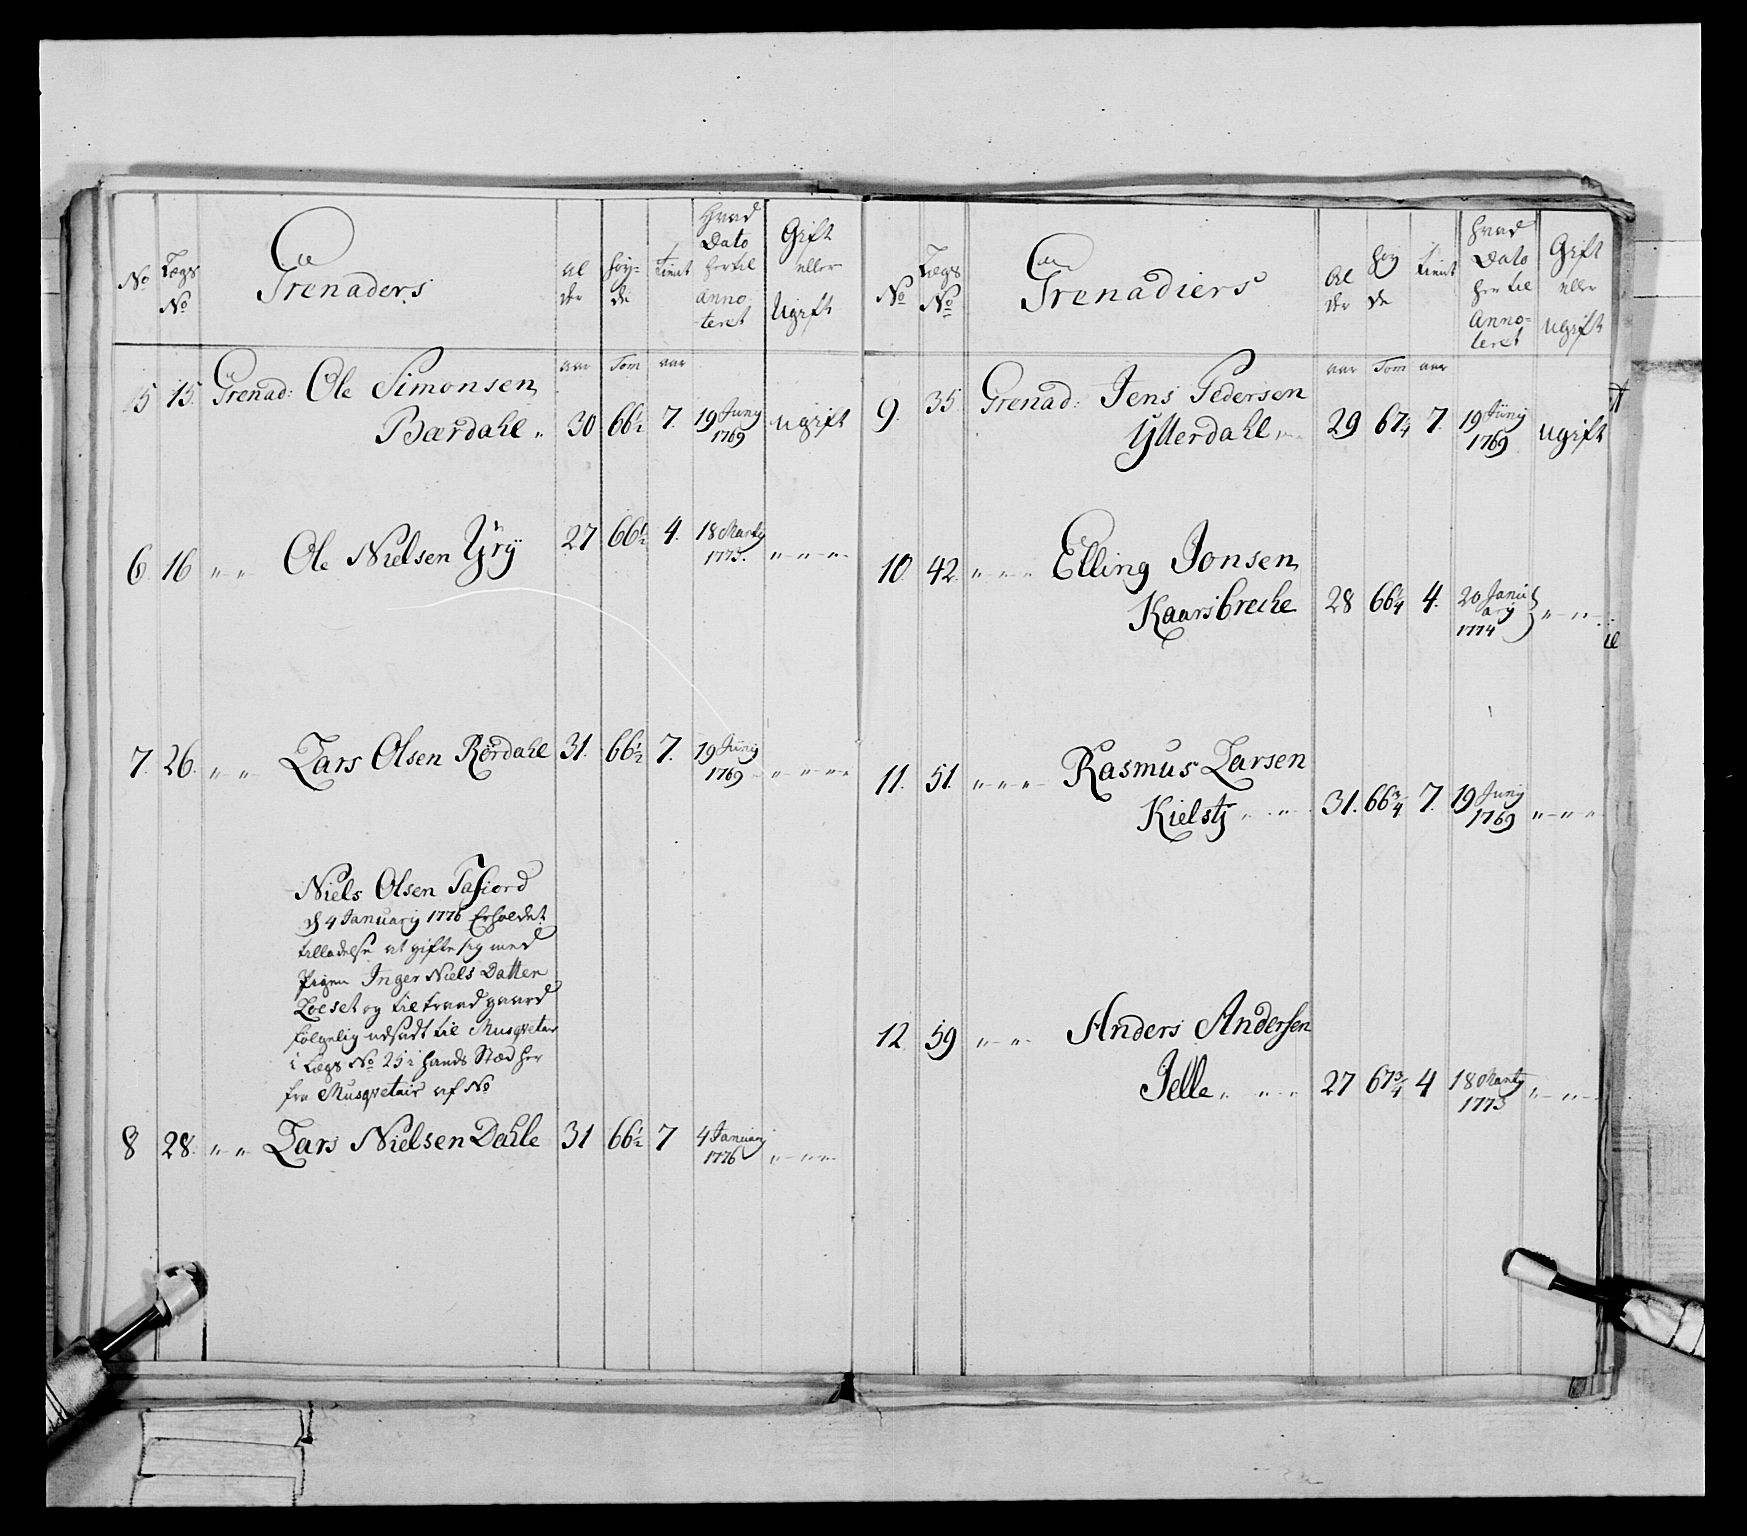 No Lægs No Grenaders Al der Høy= de tient Hvad Dato her til Anno teret Gift eller Ugift
aar Tom aar
5 15. Grenad: Ole Simonsen
Bærdahl „ 30 66½ 7. 19 Juny 1769 ugift
6. 16 „ „ Ole Nielsen Yrÿ 27 66½ 4. 18 Marty 1773. „ „ „ „
7. 26. „ „ Lars Olsen Rørdahl 31. 66½ 7. 19 Juny 1769 „ „ „ „
Niels Olsen Tafiord
d 4 January 1776 Erholdet
tilladelse at gifte sig med
Pigen Inger Niels Datter
Løeset og tiltraad gaard
følgelig udsadt til Musqvetair
i Lægs No 25 i hands Stæd her
fra Musqvetair af No
8 28. „ „ Lars Nielsen Dahle 31 66½ 7 4 January 1776 „ „ „
No Lægs No Grenadiers Al der Høy de tient Hvad Dato her til Anno= teret Gift eller Ugift
aar Tom aar
9. 35 Grenad: Jens Pedersen
Ytterdahl „ 29 67¼ 7. 19 Juny 1769 ugift
10 42. „ „ „ Elling Jonsen
Kaarsbreche 28 66¼ 4. 20 Janu ary 1774 „ „
11. 51. „ „ „ Rasmus Larsen
Kielstj „ „ 31. 66¾ 7. 19 Juny 1769 „ „ „
12. 59 „ „ Anders Andersen
Jelle „ „ „ 27 67¾ 4 18 Marty 1773 „ „